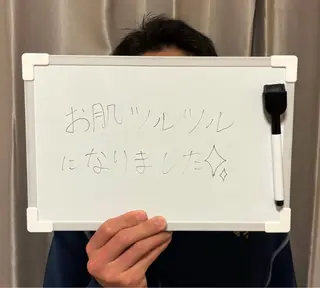 お肌ツルツル
になりました✨